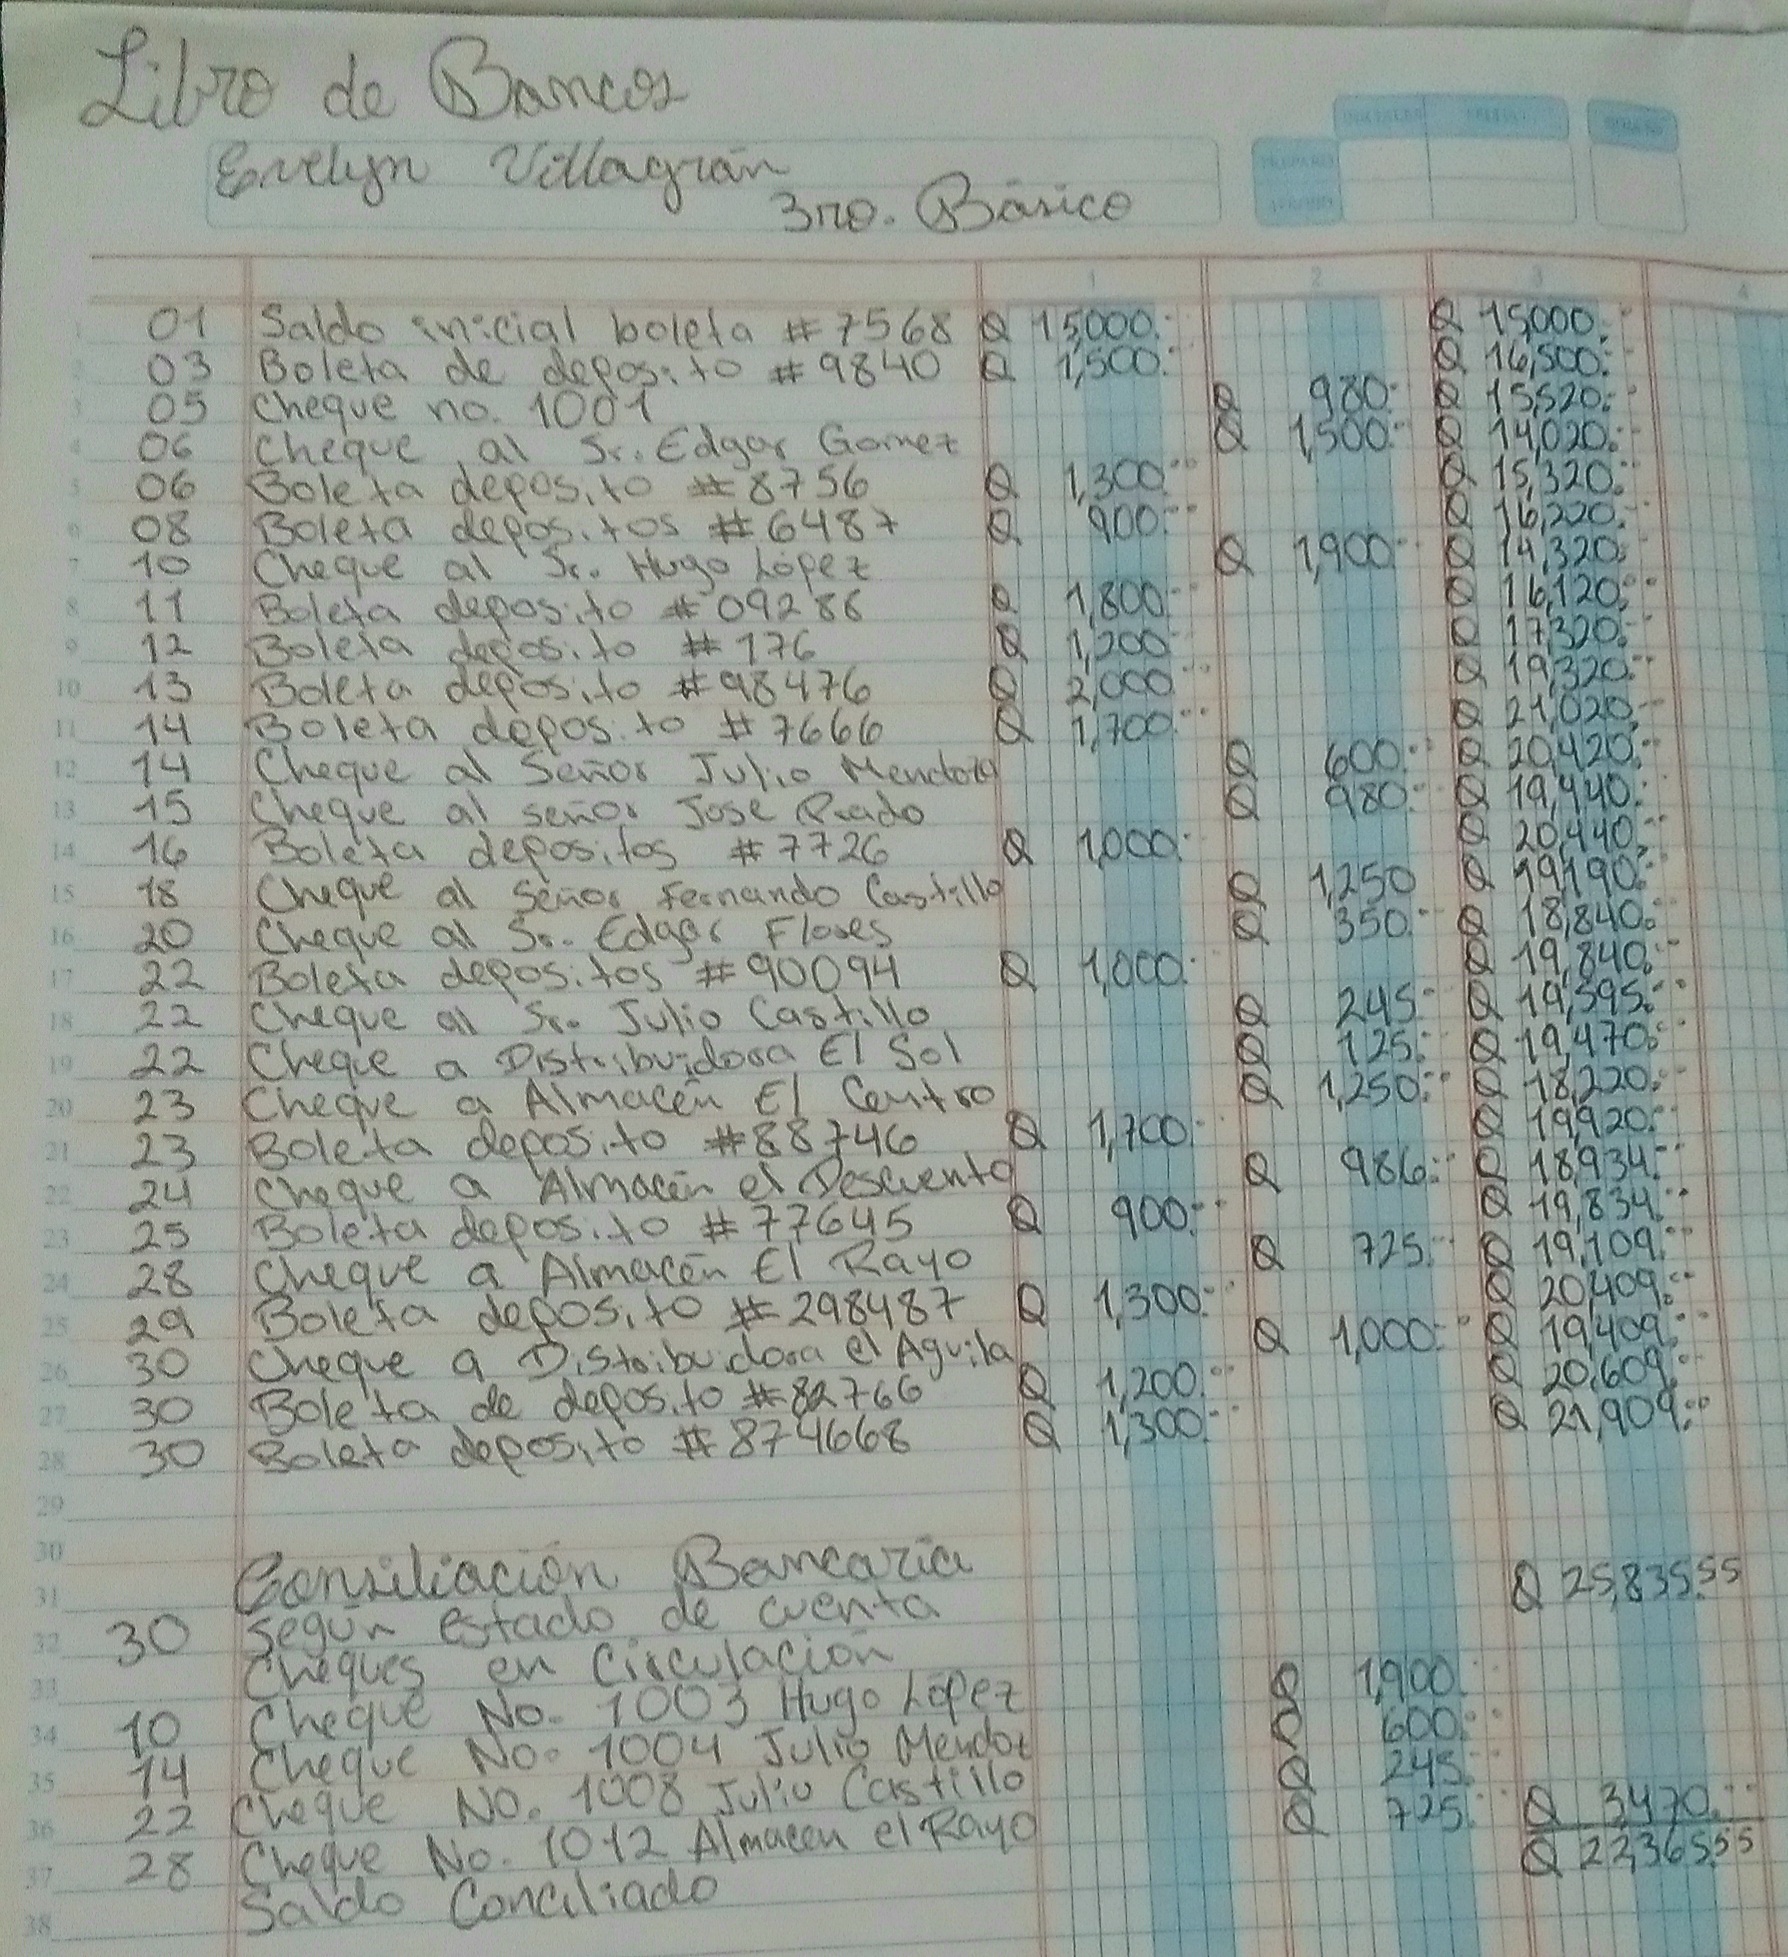 Libro de Bancos
Evelyn Villagrán
3ro. Básico
1 2 3 4
1 01 Saldo inicial boleta #7568 Q 15,000.- Q 15,000.-
2 03 Boleta de deposito #9840 Q 1,500.- Q 16,500.-
3 05 Cheque no. 1001 Q 980.- Q 15,520.-
4 06 Cheque al Sr. Edgar Gomez Q 1,500.- Q 14,020.-
5 06 Boleta deposito #8756 Q 1,300.- Q 15,320.-
6 08 Boleta depositos #6487 Q 900.- Q 16,220.-
7 10 Cheque al Sr. Hugo López Q 1,900.- Q 14,320.-
8 11 Boleta deposito #09286 Q 1,800.- Q 16,120.-
9 12 Boleta deposito #176 Q 1,200 Q 17,320.-
10 13 Boleta deposito #98476 Q 2,000.- Q 19,320.-
11 14 Boleta deposito #7666 Q 1,700.- Q 21,020.-
12 14 Cheque al Señor Julio Mendoza Q 600.- Q 20,420.-
13 15 Cheque al señor Jose Prado Q 980.- Q 19,440.-
14 16 Boleta depositos #7726 Q 1,000.- Q 20,440.-
15 18 Cheque al Señor Fernando Castillo Q 1,250 Q 19,190.-
16 20 Cheque al Sr. Edgar Flores Q 350.- Q 18,840.-
17 22 Boleta depositos #90094 Q 1,000.- Q 19,840.-
18 22 Cheque al Sr. Julio Castillo Q 245.- Q 19,595.-
19 22 Cheque a Distribuidora El Sol Q 125.- Q 19,470.-
20 23 Cheque a Almacén El Centro Q 1,250.- Q 18,220.-
21 23 Boleta deposito #88746 Q 1,700.- Q 19,920.-
22 24 Cheque a Almacén el Descuento Q 986.- Q 18,934.-
23 25 Boleta deposito #77645 Q 900.- Q 19,834.-
24 28 Cheque a Almacén El Rayo Q 725.- Q 19,109.-
25 29 Boleta deposito #298487 Q 1,300.- Q 20,409.-
26 30 Cheque a Distribuidora el Aguila Q 1,000.- Q 19,409.-
27 30 Boleta de deposito #82766 Q 1,200.- Q 20,609.-
28 30 Boleta deposito #874668 Q 1,300.- Q 21,909.-
29
30
31 Consiliación Bancaria
32 30 Según estado de cuenta Q 25,835.55
33 Cheques en Circulación
34 10 Cheque No. 1003 Hugo López Q 1,900.-
35 14 Cheque No. 1004 Julio Mendoz Q 600.-
36 22 Cheque No. 1008 Julio Castillo Q 245.-
37 28 Cheque No. 1012 Almacen el Rayo Q 725.- Q 3470.-
38 Saldo Conciliado Q 22,365.55